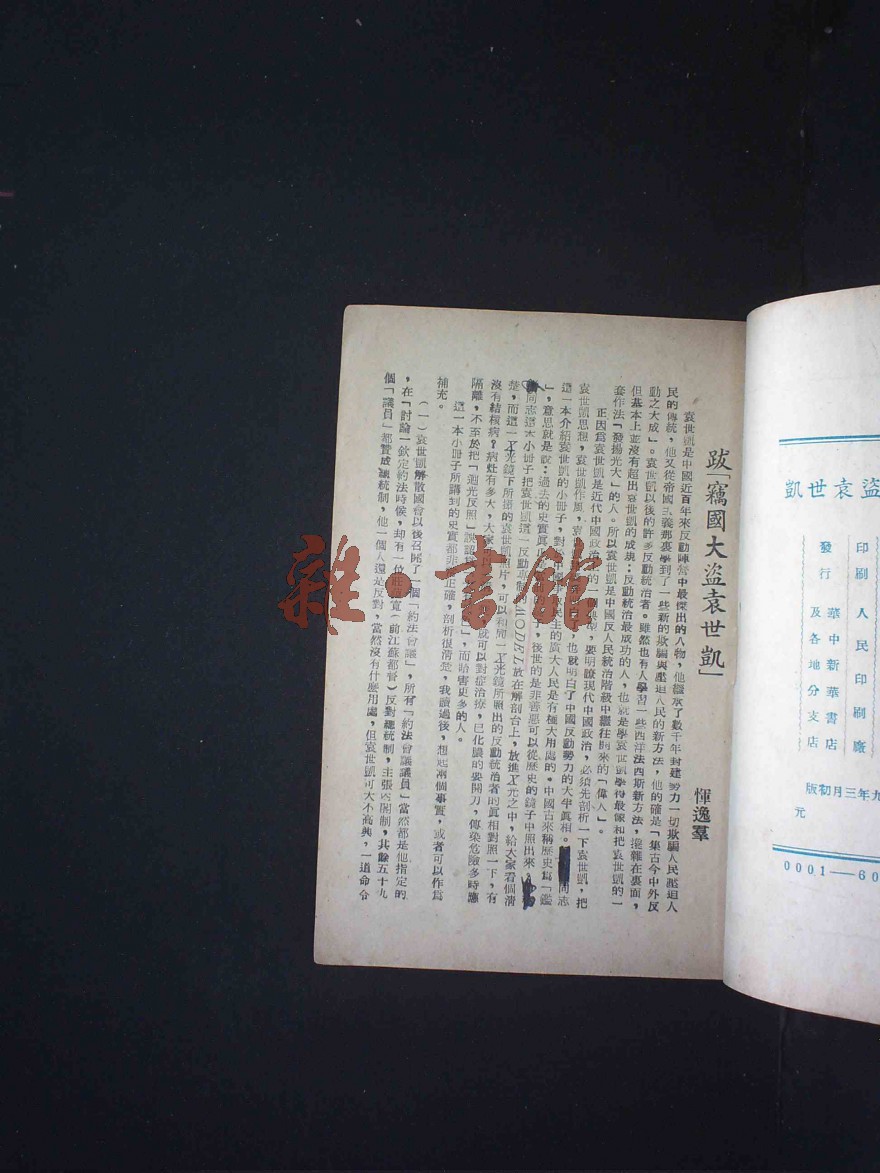 跋「竊國大盜袁世凱」
惲逸羣
袁世凱是中國近百年來反動陣營中最傑出的人物，他繼承了數千年封建勢力一切欺騙人民壓迫人
民的傳統，他又從帝國主義那裏學到了一些新的欺騙與壓迫人民的新方法，他的確是「集古今中外反
動之大成」。袁世凱以後的許多反動統治者。雖然也有人學習一些西洋法西斯新方法，攙雜在裏面，
但基本上並沒有超出袁世凱的成規：反動統治最成功的人，也就是學袁世凱學得最像和把袁世凱的一
套作法「發揚光大」的人。所以袁世凱是中國反人民統治階級中繼往開來的「偉人」。
正因爲袁世凱是近代中國政治的一個典型，要明瞭現代中國政治，必須先剖析一下袁世凱，把
袁世凱思想，袁世凱作風，袁，也就明白了中國反動勢力的大半眞相。同志
這一本介紹袁世凱的小冊子，對於主的廣大人民是有極大用處的。中國古來稱歷史爲「鑑
」，意思就是說：過去的史實眞，後世的是非善惡可以從歷史的鏡子中照出來。
同志這本小冊子把袁世凱這一反動專制的MODEL放在解剖台上，放進X光之中，給大家看個淸
楚，而這一X光鏡下所攝的袁世凱照片，可以和同一X光鏡所照出的反動統治者的眞相對照一下，有
沒有結核病？病灶有多大，大家就可以對症治療，已化膿的要開刀，傳染危險多時應
隔離，不至於把「迴光反照」誤認」，而貽害更多的人。
這一本小冊子所講到的史實都非常正確，剖析很淸楚，我讀過後，想起兩個事實，或者可以作爲
補充。
（一）袁世凱解散國會以後召開了一個「約法會議」，所有「約法會議議員」當然都是他指定的
，在「討論」欽定約法時候，却有一位莊蘊寬（前江蘇都督）反對總統制，主張內閣制，其餘五十九
個「議員」都贊成總統制，他一個人還是反對，當然沒有什麼用處，但袁世凱可大不高興，一道命令
盜袁世凱
印刷 人民印刷廠
發行 華中新華書店
及各地分支店
九年三月初版
元
0001—60
雜·書館